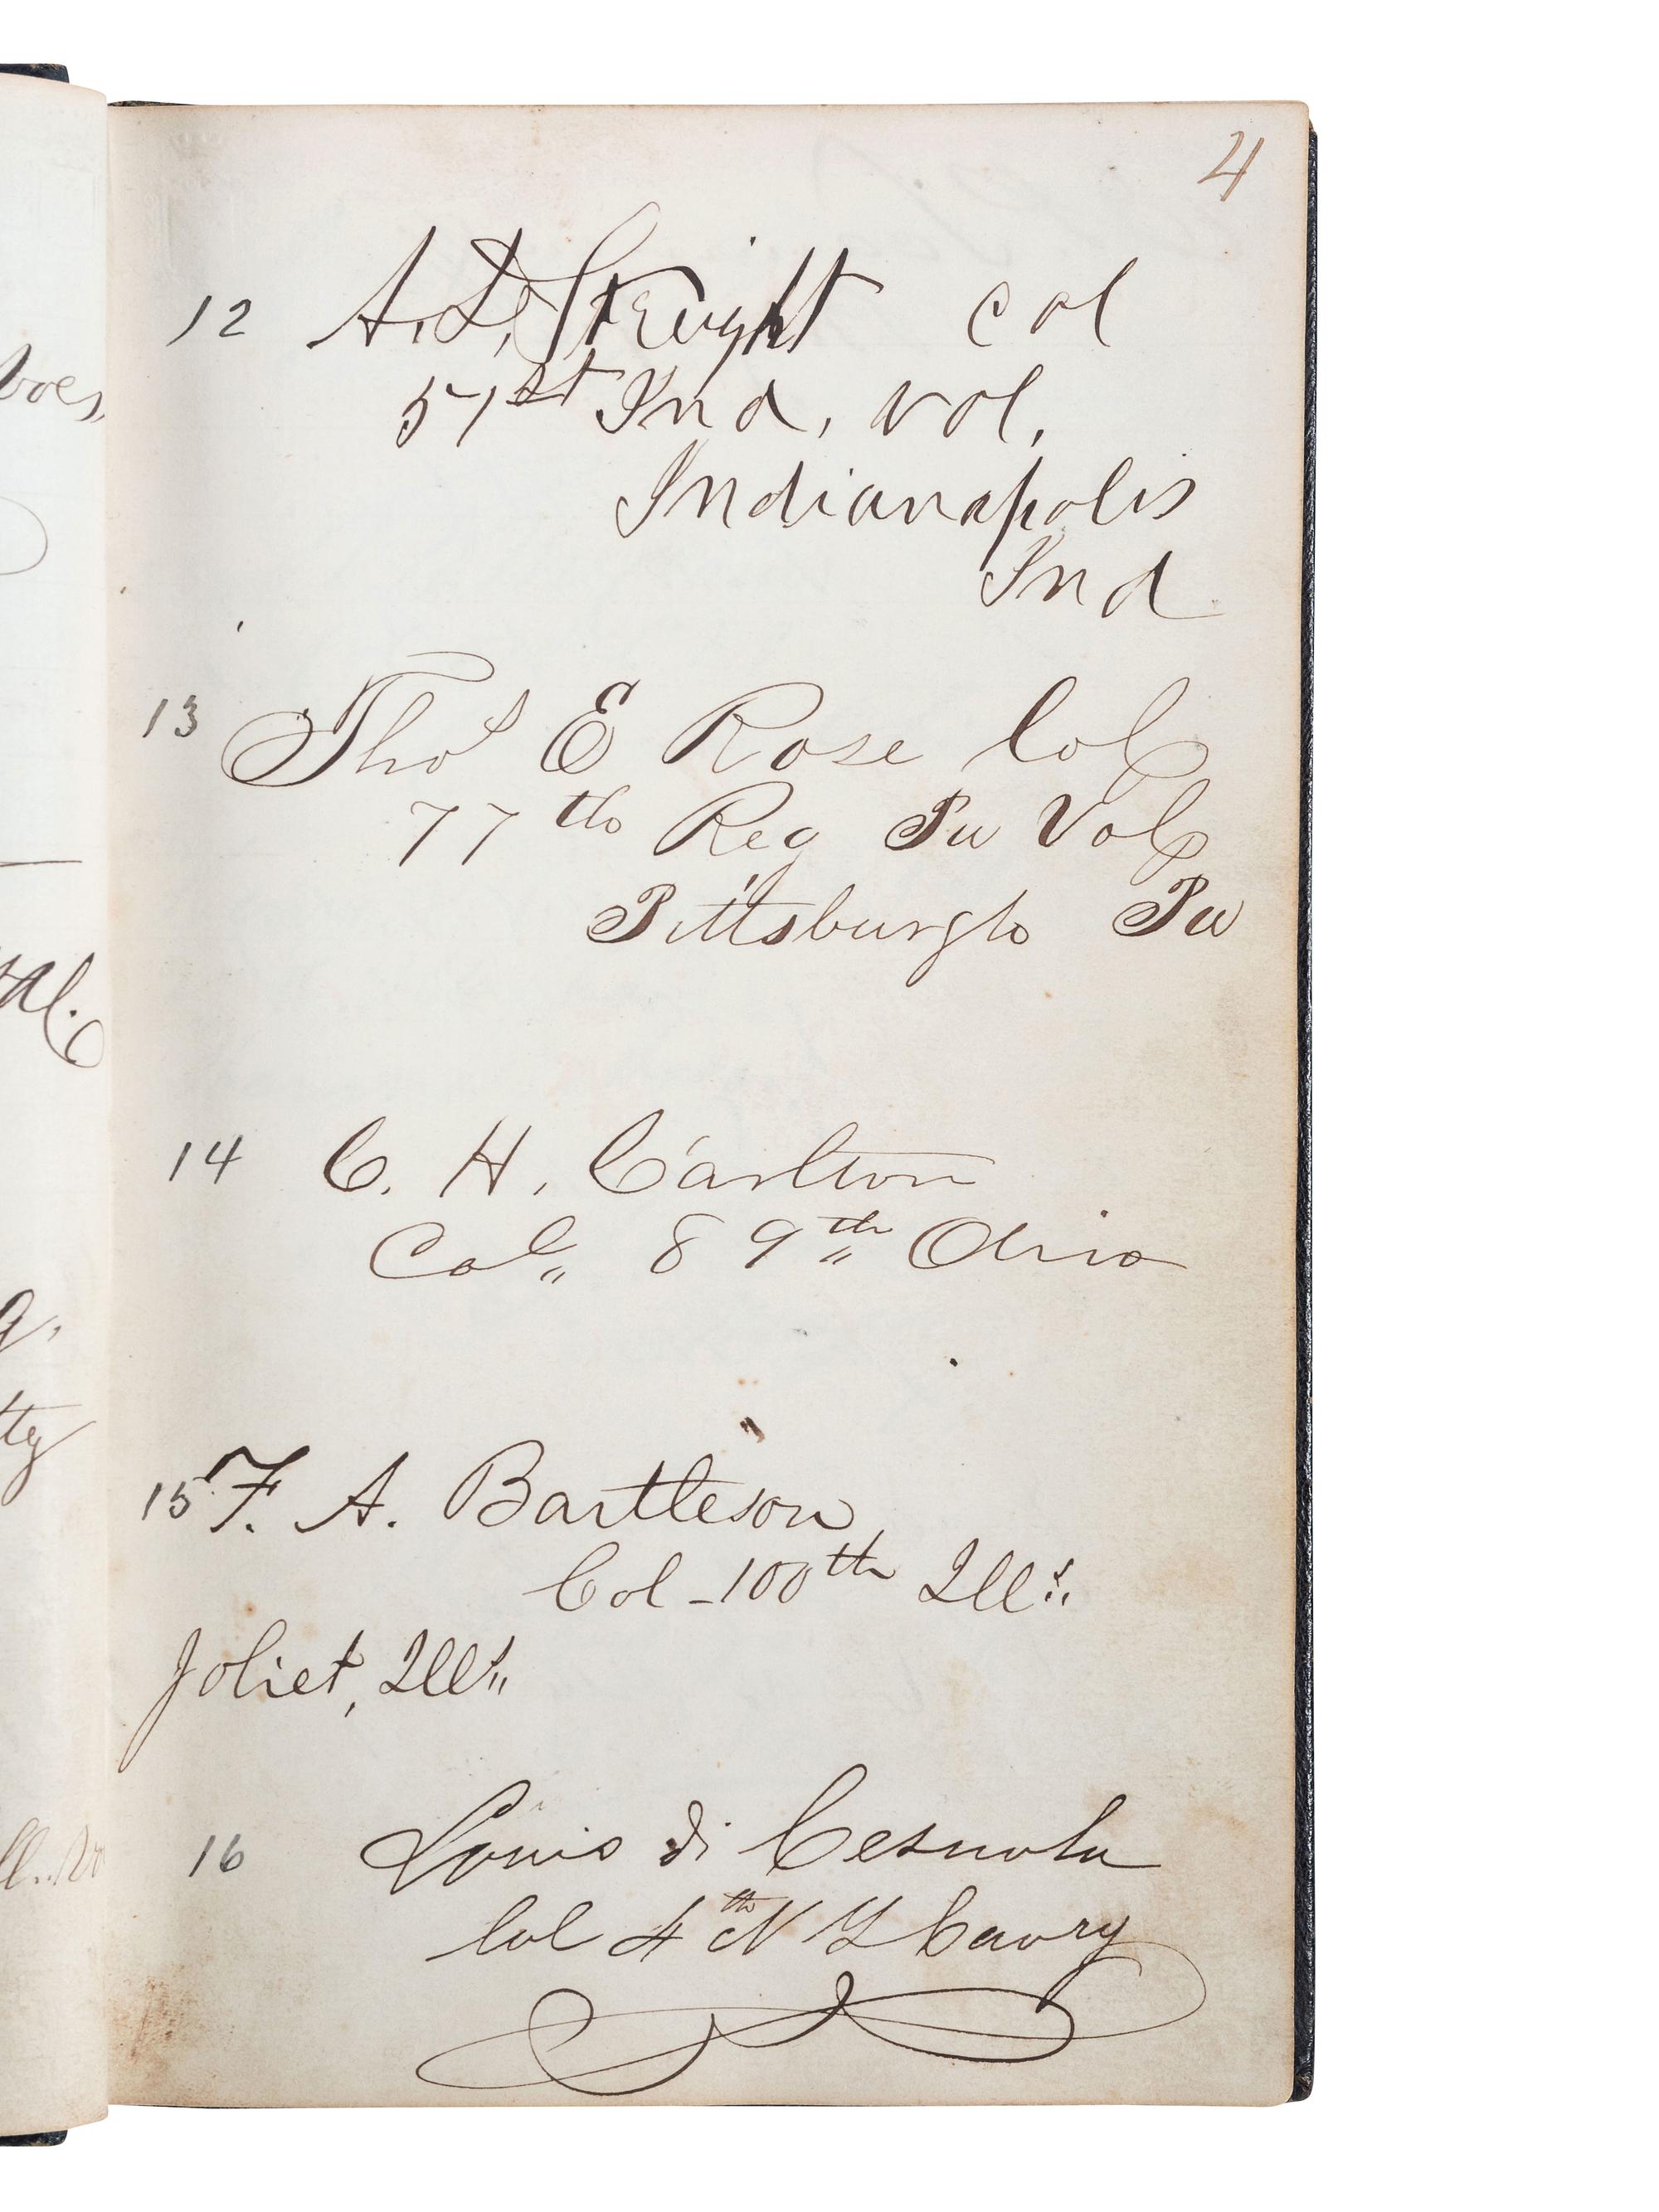 4
12 A. D. Streight Col
51st Ind, Vol,
Indianapolis
Ind
13 Thos E Rose Col
77th Reg Pa Vol
Pittsburgh Pa
14 C. H. Carlton
Col 89th Ohio
15 F. A. Bartleson,
Col - 100th Ills
Joliet, Ills
16 Louis di Cesnola
Col 4th N Y Cavry